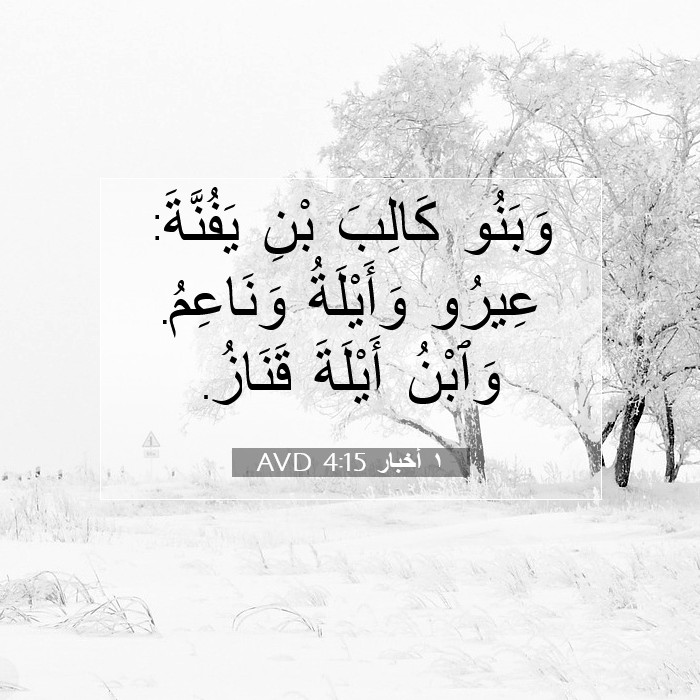 وَبَنُو كَالِبَ بْنِ يَفُنَّةَ:
عِيرُو وَأَيْلَةُ وَنَاعِمُ.
وَٱبْنُ أَيْلَةَ قَنَازُ.
١ أخبار 4:15 AVD